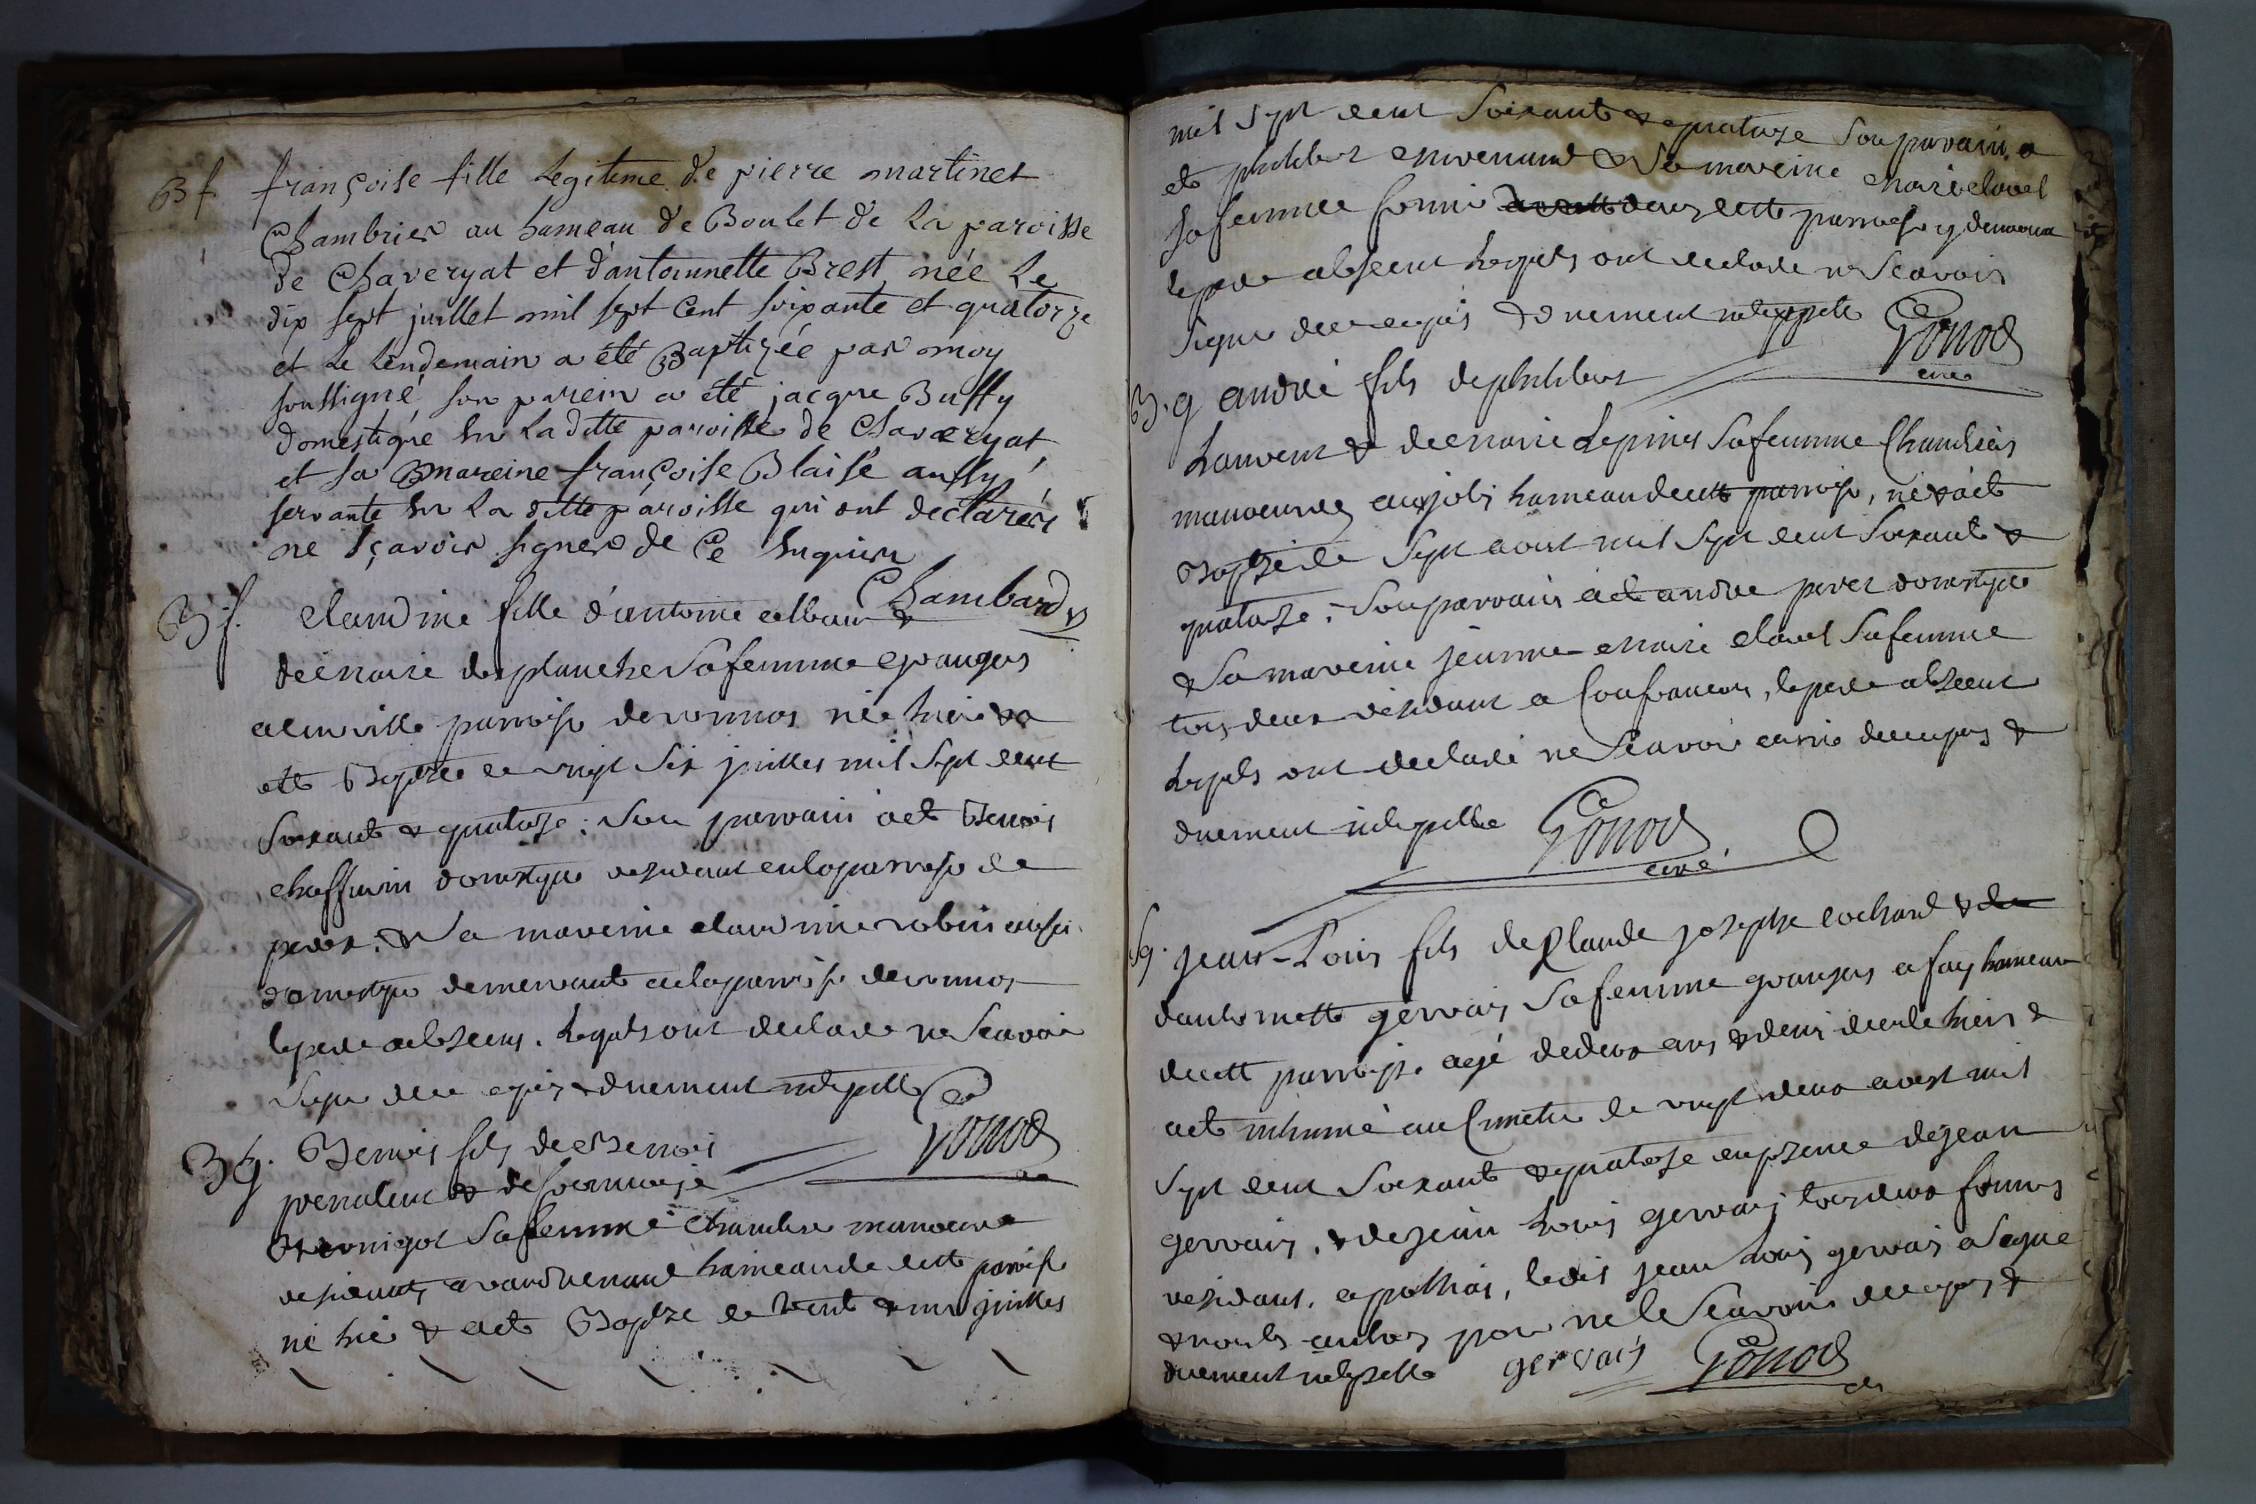 Bf françoise fille Legitime de pierre martinet
Chambrier au hameau de Boulet de La paroisse
de Chaveryat et d'antoinnette Brest née Le
dix sept juillet mil sept Cent soixante et quatorze
et Le Lendemain a été Baptizée par moy
soussigné son parein a été jacque Buffy
domestique Sur La ditte paroisse de Chaveryat
et sa mareine françoise Blaise aussy
servante Sur La ditte paroisse qui ont declarés
ne sçavoir signer de Ce Enquieu
Chambard
B.f. claudine fille d'antoine alban &
de marie desplanche Sa femme grangers
paroisse de vonnas née hier & a
ette Baptzée le vingt Six juillet mil Sept cent
Soixante & quatorze : Son parrain a ete Benois
chaffurin domestique residant en la parroisse de
perex. & Sa mareine claudine robin aussi
domestique demeurante en la parroisse de vonnas
le pere absent. Lesquels ont declare ne Scavoir
Signe de ce enquis & duement interpelle
Gonod
B g. Benois fils de Benois
perraud & de
Sa femme manoeuvre
residants hameau de cette parroisse
né hier & a ete Baptize le trente & un juillet
mil Sept cent Soixante & quatorze Son parrain a
ete philibert & Sa mareine marie clavel
Sa femme de cette parroisse y demeurant
le pere absent Lesquels ont declare ne Scavoir
Signe de ce enquis & duement interpelle
Gonod
curé
B.g andré fils de philibert
Laurent & de marie Lepines Sa femme
manoeuvres aux jolis hameau de cette parroisse, né & a ete
Baptzé le Sept aoust mil Sept cent Soixante &
quatorze ; Son parrain a ete andre perret domestique
& Sa mareine jeanne marie clavel Sa femme
tous deux residant a Confrancon, le pere absent
Lesquels ont declaré ne Scavoir ecrire de ce enquis &
duement interpelle Gonod
curé
Sg. jean-Louis fils de Claude joseph cochard & de
d'antoinette gervais Sa femme grangers a fay hameau
de cette parroisse agé de deux ans & demi decede hier &
a ete inhumé au Cimetiere le vingt deux aoust mil
Sept cent Soixante & quatorze en presence de jean
gervais, & de jean Louis gervais tous deux
residant, a polliat, ledit jean Louis gervais a Signe
& non les autres pour ne le Scavoir de ce enquis &
duement interpelle gervais Gonod